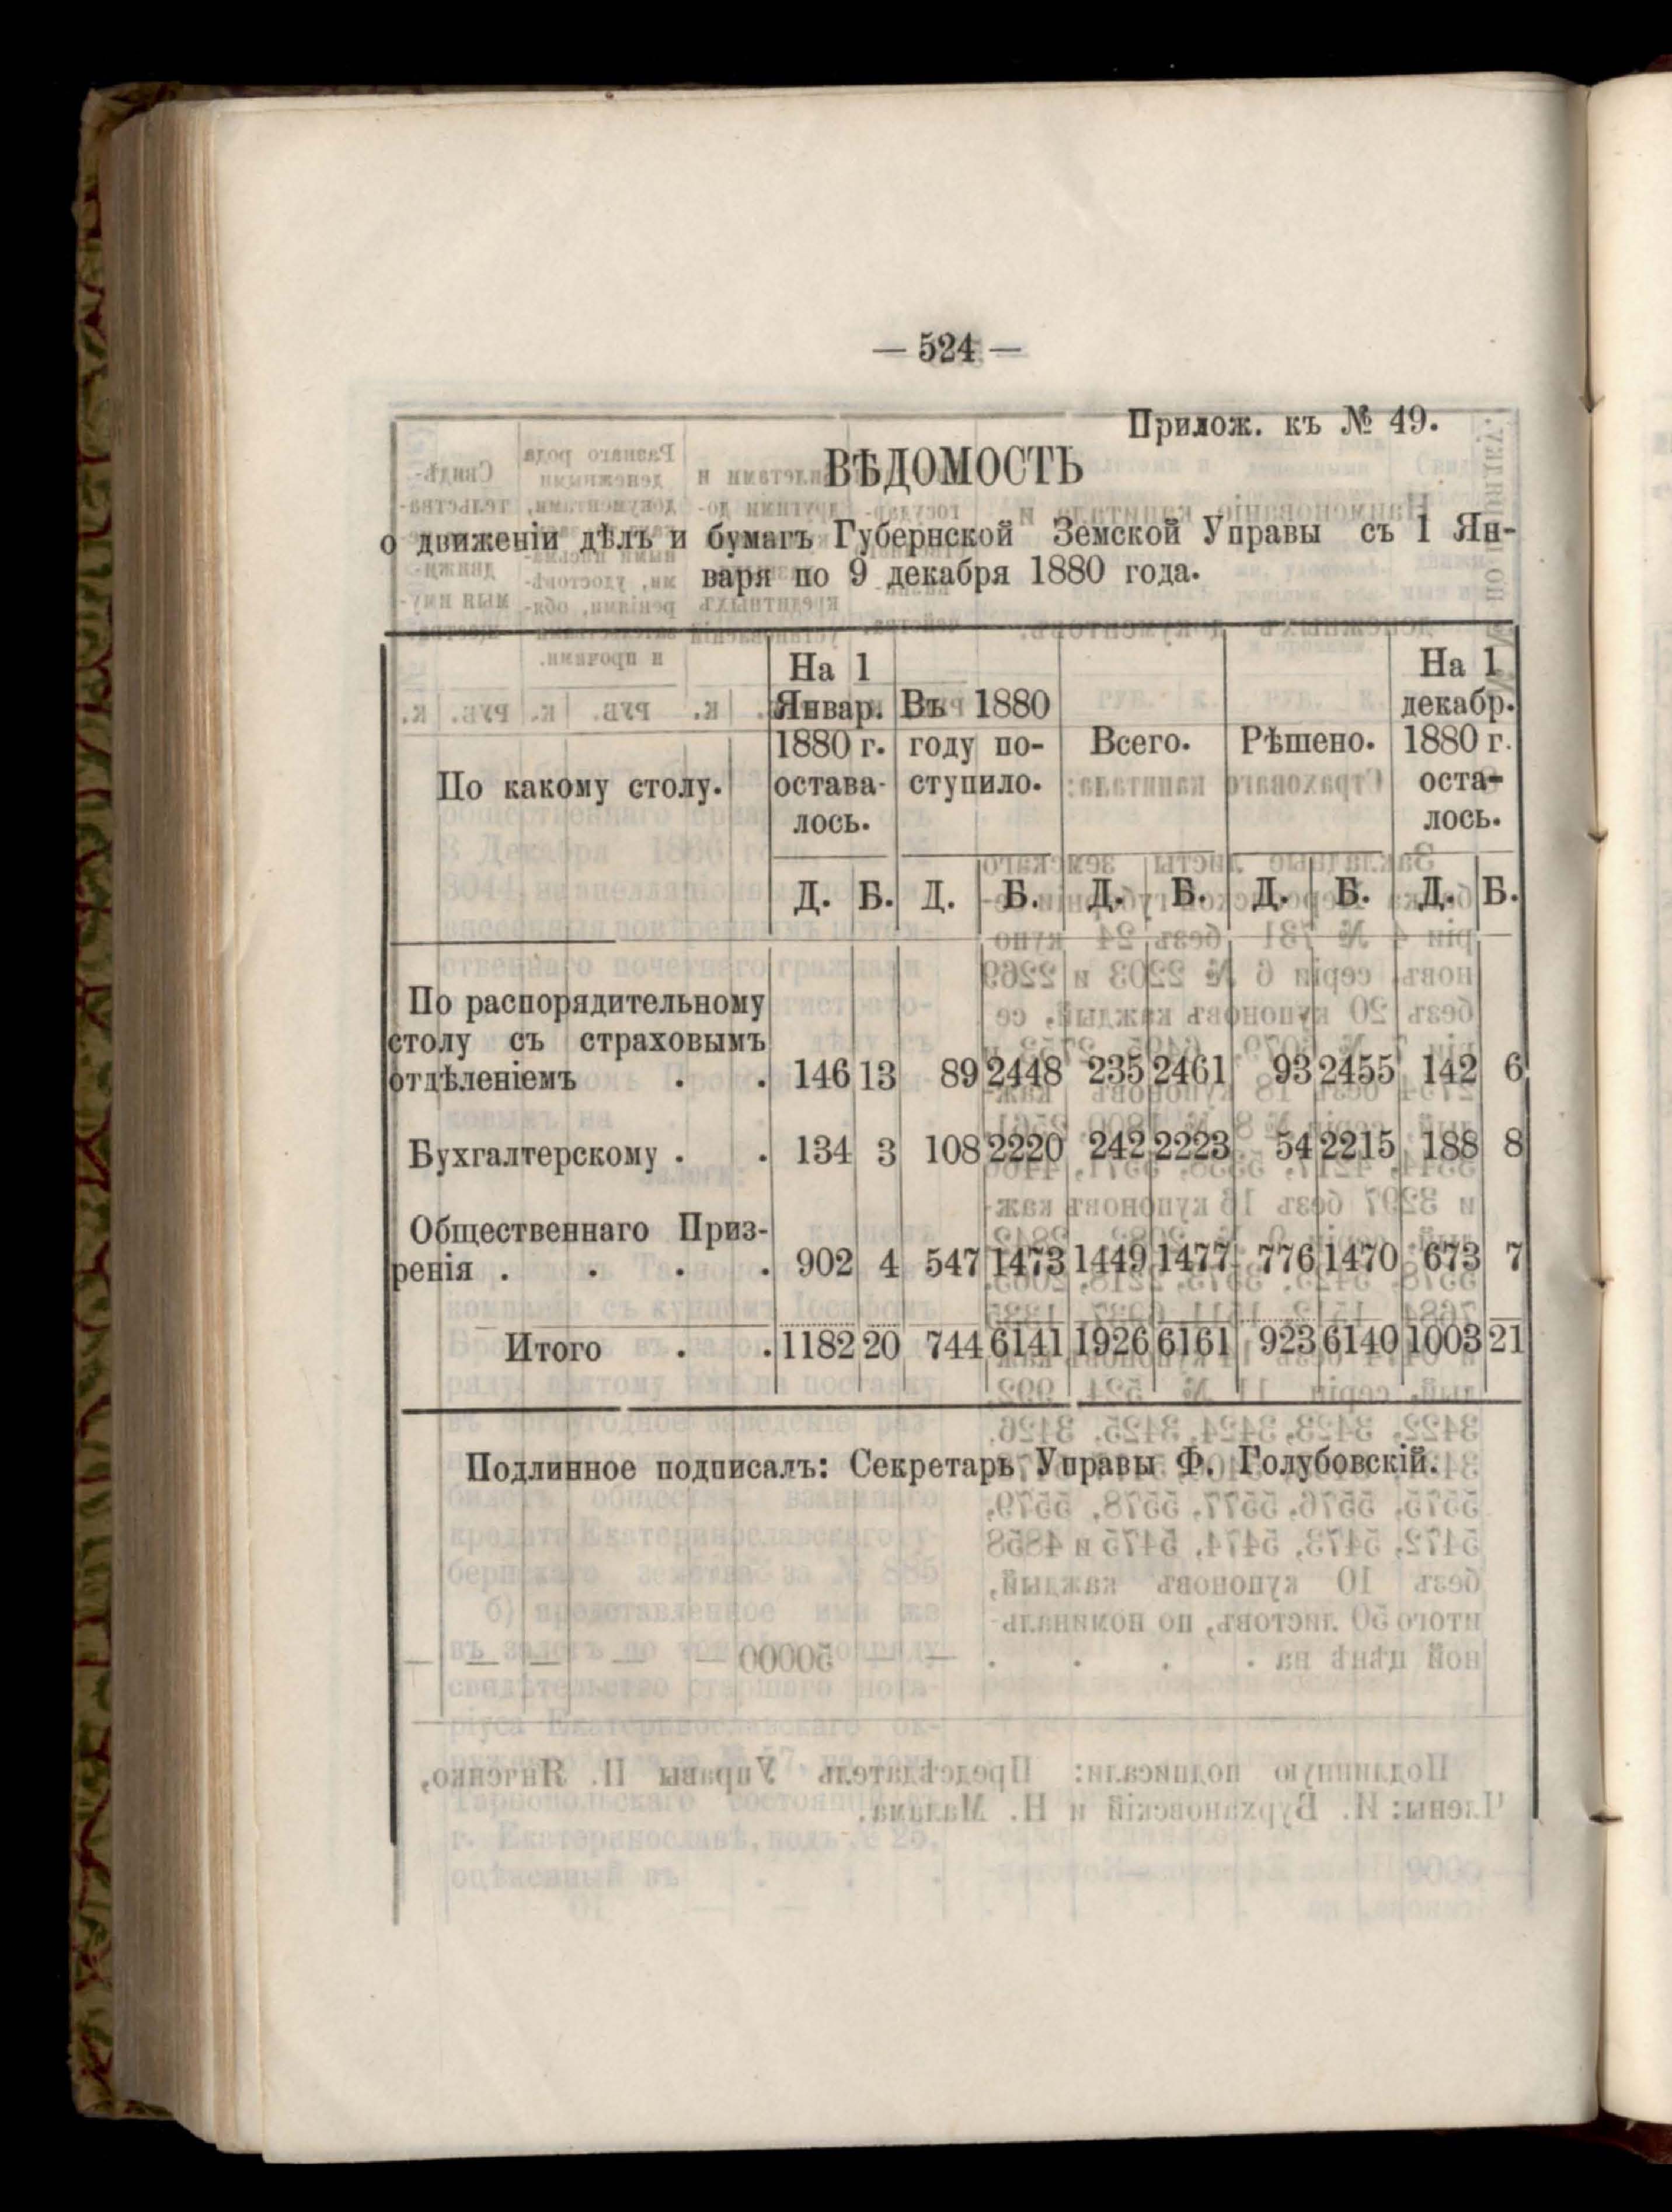 — 524 —
Прилож. къ № 49.
ВѢДОМОСТЬ
о движеніи дѣлъ и бумагъ Губернской Земской Управы съ 1 Ян-
варя по 9 декабря 1880 года.
По какому столу.
На 1
Январ.
1880 г.
остава-
лось.
Въ 1880
году по-
ступило.
Всего.
Рѣшено.
На 1
декабр.
1880 г.
оста-
лось.
Д. Б. Д. Б. Д. Б. Д. Б. Д. Б.
По распорядительному
столу съ страховымъ
отдѣленіемъ . . 146 13 89 2448 235 2461 93 2455 142 6
Бухгалтерскому . . 134 3 108 2220 242 2223 54 2215 188 8
Общественнаго Приз-
ренія . . . . 902 4 547 1473 1449 1477 776 1470 673 7
Итого . . 1182 20 744 6141 1926 6161 923 6140 1003 21
Подлинное подписалъ: Секретарь Управы Ф. Голубовскій.